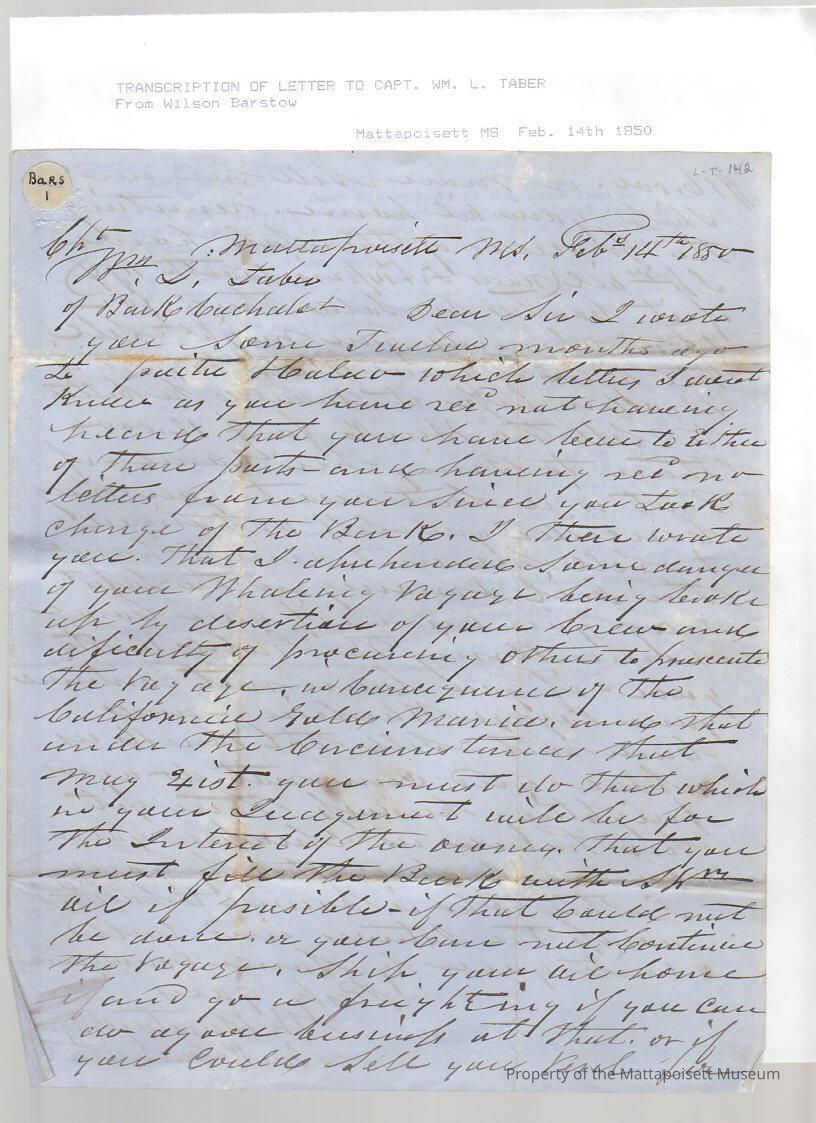 TRANSCRIPTION OF LETTER TO CAPT. WM. L. TABER
From Wilson Barstow
Mattapoisett MS Feb. 14th 1850
BARS
1
L-T-142
Cpt : Mattapoisett Ms. Feby 14th 1850
Wm. L. Taber
of Bark Cachalot Dear Sir I wrote
you some Twelve months ago
to Halao which letters I dont
Know as you have recd not having
heard that you have been to Either
of those parts - and having recd no
letters from you since you Took
charge of The Bark. I Then wrote
you. That I aphrehended Some danger
of your Whaleing Voyage being broke
up by desertion of your Crew and
dificulty of procureing others to prosecute
The Voyage, in Consequence of The
California Gold Mania. and that
under The Circumstances that
may Exist. you must do That which
in your Judgement will be for
The Interest of The owners. That you
must fill The Bark with Spm
oil if posible - if That Could not
be done. or you Can not Continue
The Voyage. Ship your oil home
if and go a freighting if you can
do agoou business at That. or if
you Could Sell you
Property of the Mattapoisett Museum